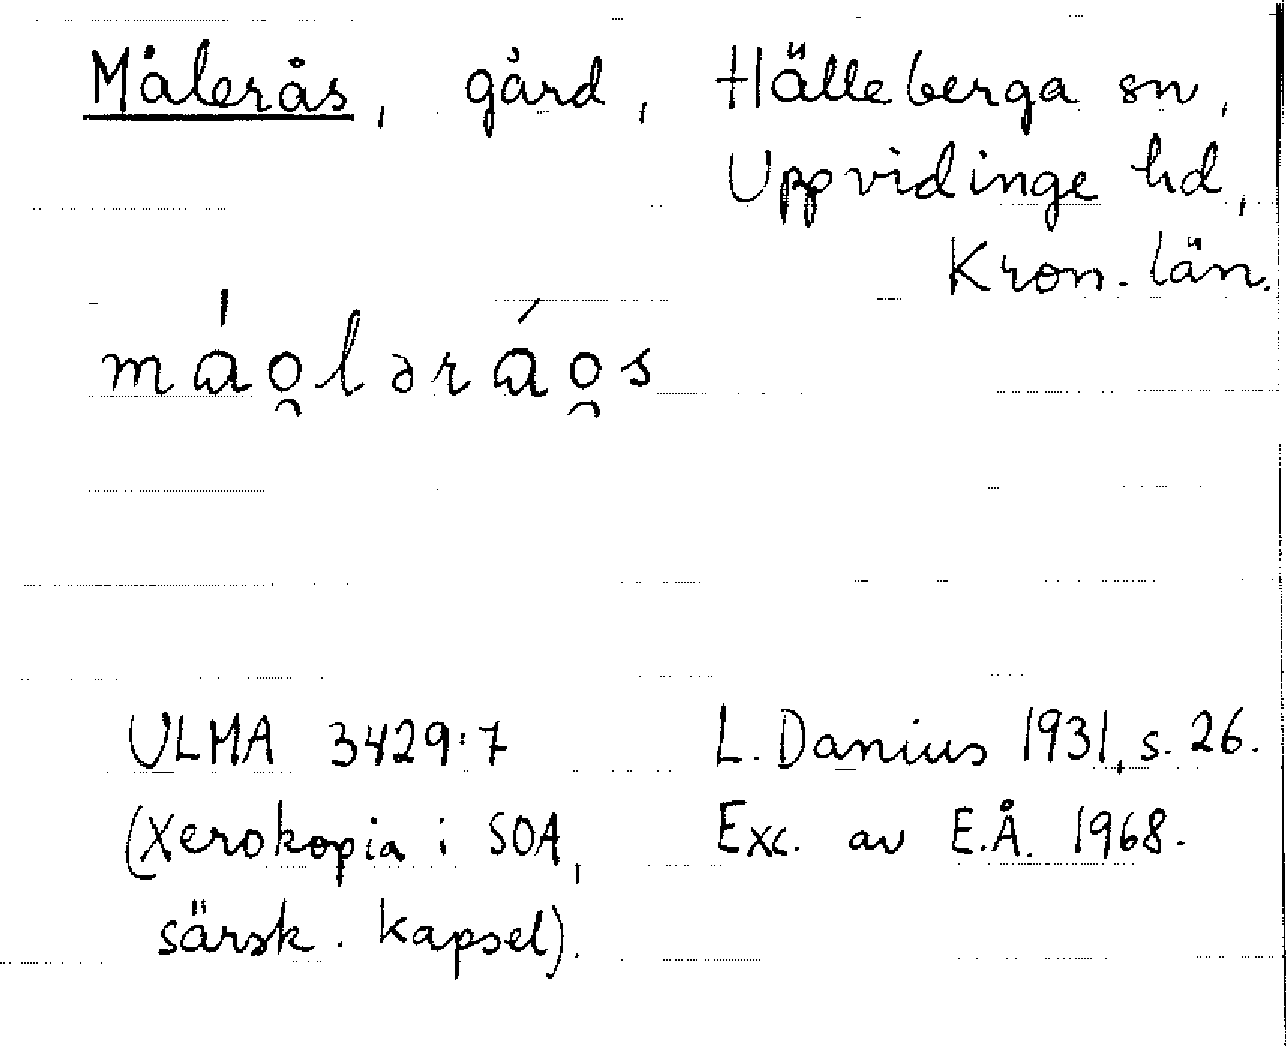 Målerås, gård, Hälleberga sn,
Uppvidinge hd,
Kron. län.
má̍o̯ləráo̯s
ULMA 3429:7 L. Danius 1931, s. 26.
(Xerokopia i SOA, Exc. av E.Å. 1968.
särsk. kapsel).